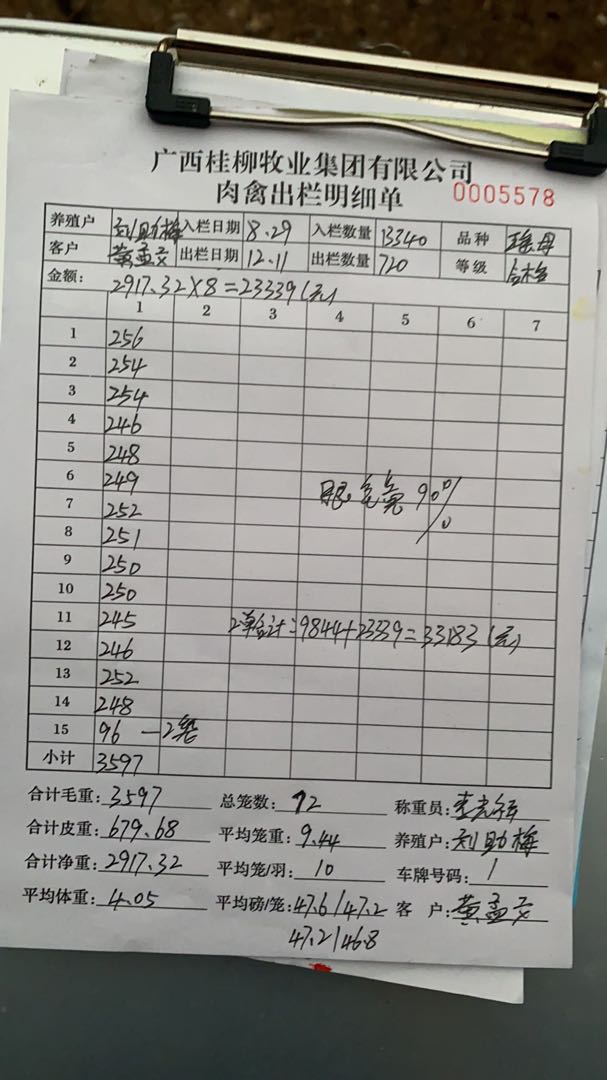 广西桂柳牧业集团有限公司
肉禽出栏明细单 0005578
养殖户 刘助梅 入栏日期 8.29 入栏数量 13340 品种 瑶母
客户 黄孟文 出栏日期 12.11 出栏数量 720 等级 合格
金额: 2917.32×8=23339(元)
1 2 3 4 5 6 7
1 256
2 254
3 254
4 246
5 248
6 249
眼 毛亮 90%
7 252
8 251
9 250
10 250
11 245 2单合计:9844+23339=33183(元)
12 246
13 252
14 248
15 96 —2笼
小计 3597
合计毛重: 3597 总笼数: 72 称重员:
合计皮重: 679.68 平均笼重: 9.44 养殖户: 刘助梅
合计净重: 2917.32 平均笼/羽: 10 车牌号码: 1
平均体重: 4.05 平均磅/笼: 47.6/47.2 客 户: 黄孟文
47.2/46.8